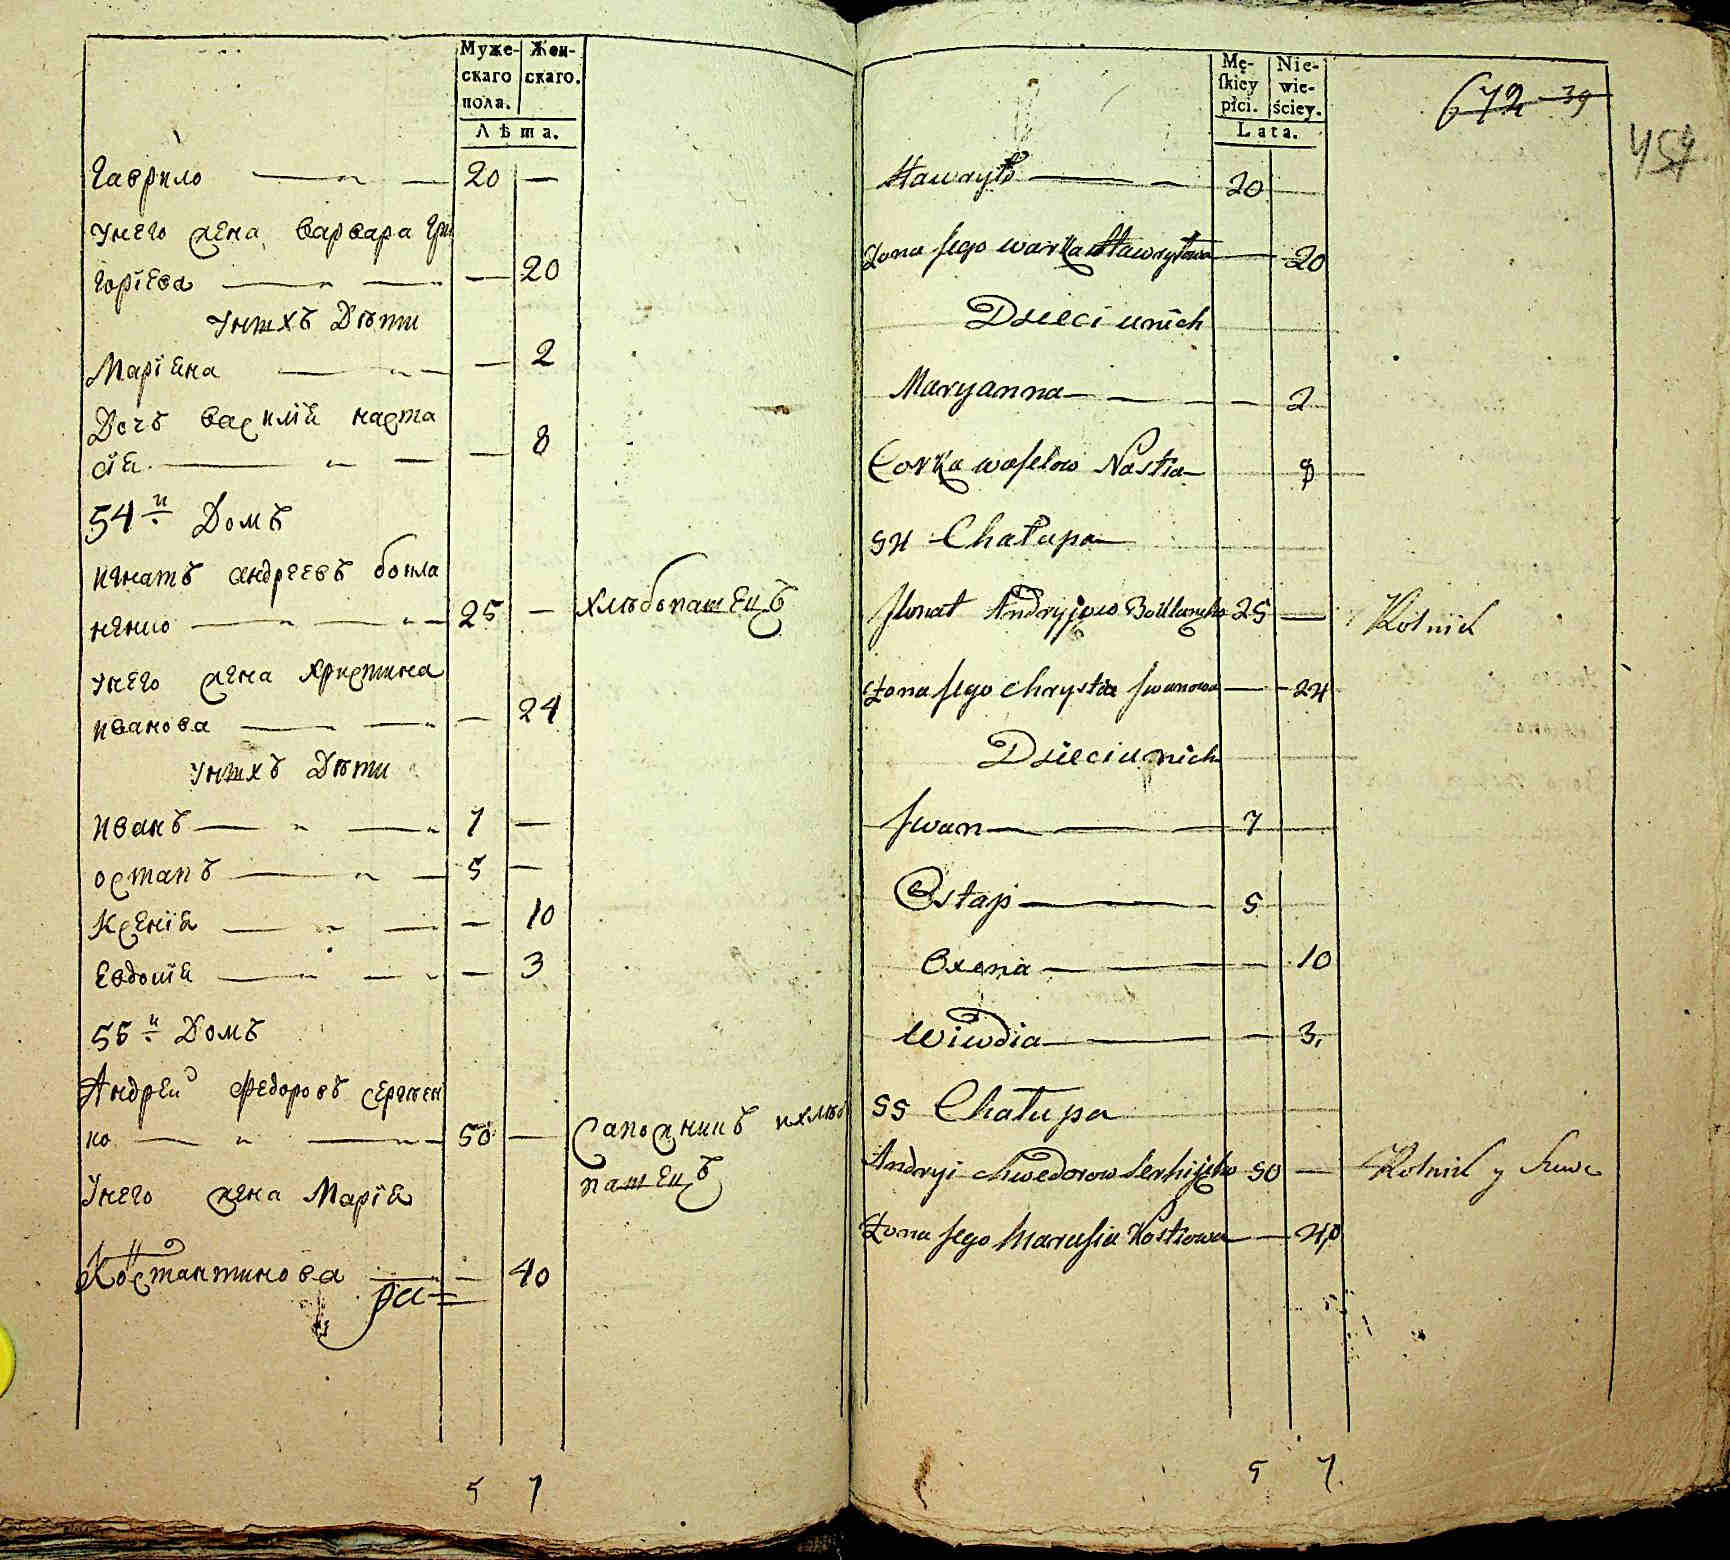 Муже- Жен-
скаго скаго.
пола.
Лѣта.
Гаврило 20 —
унего жена варвара Гри
горїева — 20
унихъ Дѣти
Марїяна — 2
Дочь василїя наста
сїя — 8
54й Домъ
игнатъ андреевъ
25 — хлѣбопашецъ
унего жена христина
иванова — 24
унихъ Дѣти
иванъ 7 —
остапъ 5 —
Ксенїя — 10
Евдокїя — 3
55й Домъ
Андрей Федоровъ сергѣен
ко 50 — Сапожникъ ихлѣбо
пашецъ
Унего жена Марїя
Костантинова — 40
ра
5 7
Mę- Nie-
skiey wie-
płci. ściey.
Lata.
672 39
454
Hawryło 20
Żona Jego warka Hawryłowa — 20
Dzieci unich
Maryanna — 2
Corka wasylow Nastia 8
54 Chałupa
Ihnat Andryjow 25 — Rolnik
Żona Jego Chrystia Iwanowa — 24
Dzieci unich
Iwan 7
Ostap 5
Oxena — 10
Wiwdia — 3
55 Chałupa
Andryi Chwedorow Serhijenko 50 — Rolnik y Szewc
Żona Jego Marusia Kostiowa — 40
5 7